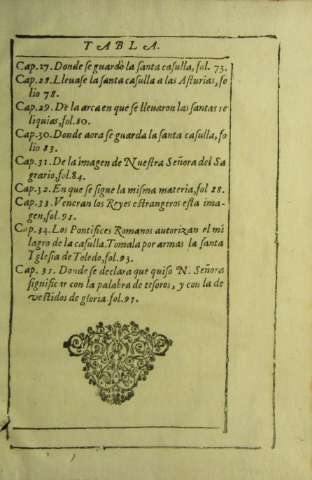 TABLA.
Cap.27. Donde se guardò la santa casulla, fol. 73.
Cap.28. Lleuase la santa casulla a las Asturias, fo
lio 78.
Cap.29. De la arca en que se lleuaron las santas re
liquias, fol.80.
Cap.30. Donde aora se guarda la santa casulla, fo
lio 83.
Cap.31. De la imagen de Nuestra Señora del Sa
grario, fol.84.
Cap.32. En que se sigue la misma materia, fol 88.
Cap.33. Veneran los Reyes estrangeros esta ima-
gen, fol.91.
Cap.34. Los Pontifices Romanos autorizan el mi
lagro de la casulla. Tomala por armas la santa
Yglesia de Toledo, fol.93.
Cap. 35. Donde se declara que quiso N. Señora
significar con la palabra de tesoros, y con la de
vestidos de gloria. fol.97.